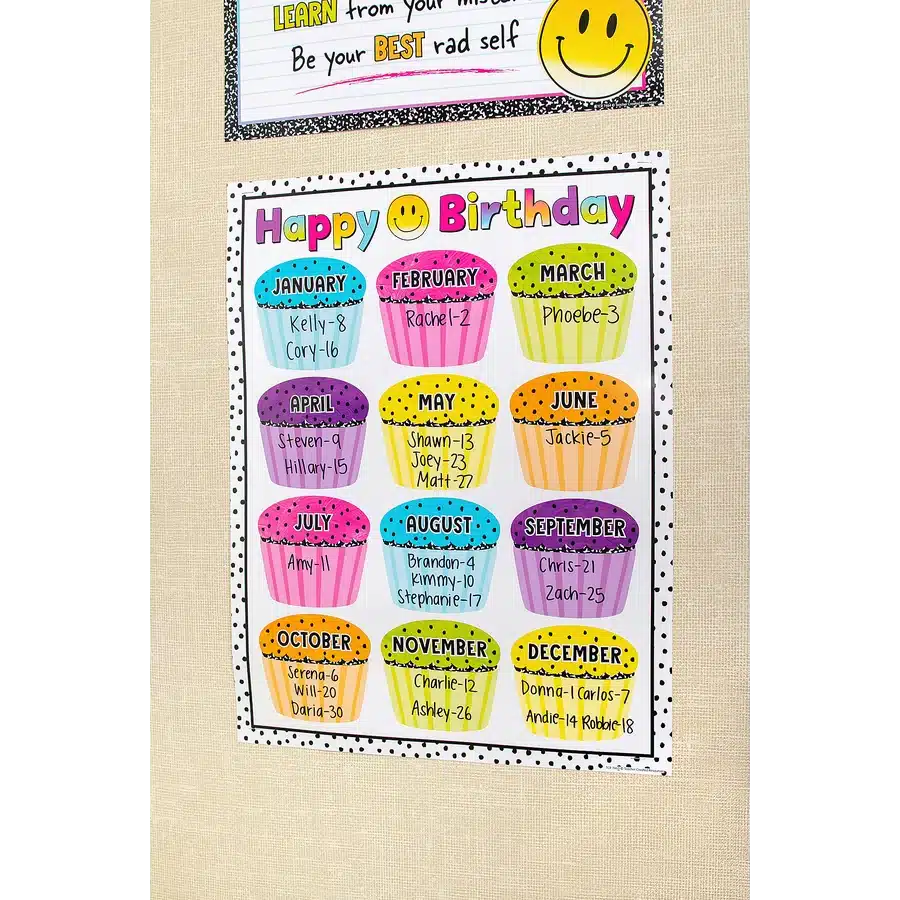 LEARN from your
Be your BEST rad self
Happy Birthday
JANUARY
Kelly-8
Cory-16
FEBRUARY
Rachel-2
MARCH
Phoebe-3
APRIL
Steven-9
Hillary-15
MAY
Shawn-13
Joey-23
Matt-27
JUNE
Jackie-5
JULY
Amy-11
AUGUST
Brandon-4
Kimmy-10
Stephanie-17
SEPTEMBER
Chris-21
Zach-25
OCTOBER
Serena-6
Will-20
Daria-30
NOVEMBER
Charlie-12
Ashley-26
DECEMBER
Donna-1 Carlos-7
Andie-14 Robbie-18